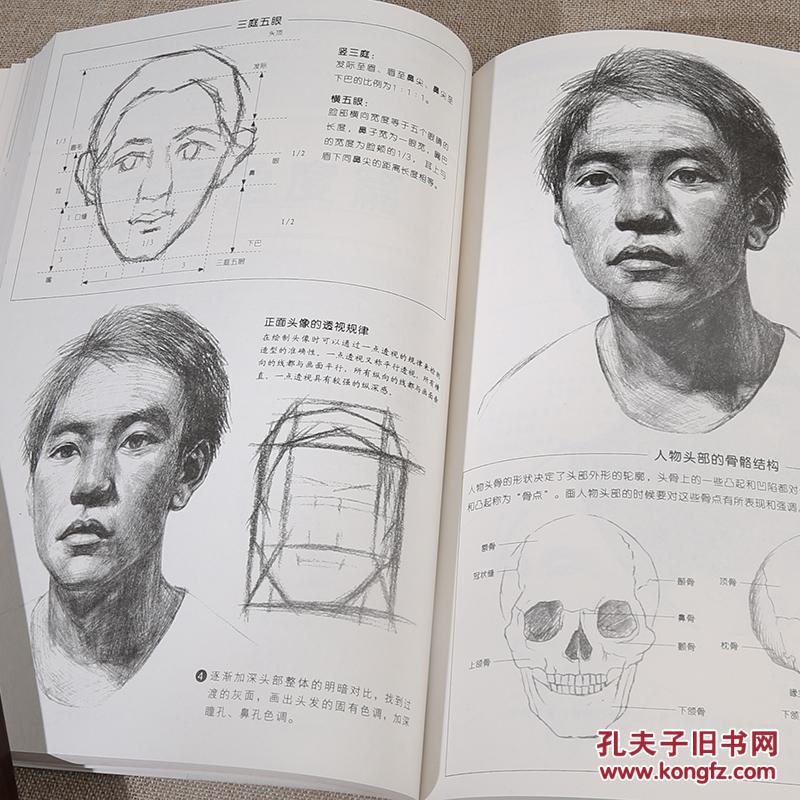 三庭五眼
头顶
发际
1/3
眉毛
1/2
眼
耳
鼻
1 口缝
2
1/2
3
1/3
下巴
嘴
1 2 3
三庭五眼
竖三庭：
发际至眉、眉至鼻尖、鼻尖至
下巴的比例为1：1：1。
横五眼：
脸部横向宽度等于五个眼睛的
长度，鼻子宽为一眼宽，嘴巴
的宽度为脸颊的1/3，耳上与
眉下同鼻尖的距离长度相等。
正面头像的透视规律
在绘制头像时可以通过一点透视的规律来检测
造型的准确性。一点透视又称平行透视，所有横
向的线都与画面平行，所有纵向的线都与画面垂
直，一点透视具有较强的纵深感。
4 逐渐加深头部整体的明暗对比，找到过
渡的灰面，画出头发的固有色调，加深
瞳孔、鼻孔色调。
人物头部的骨骼结构
人物头骨的形状决定了头部外形的轮廓，头骨上的一些凸起和凹陷都对
和凸起称为“骨点”。画人物头部的时候要对这些骨点有所表现和强调
额骨
冠状缝
颞骨
顶骨
鼻骨
颧骨
枕骨
上颌骨
下颌骨
下颌
孔夫子旧书网
www.kongfz.com